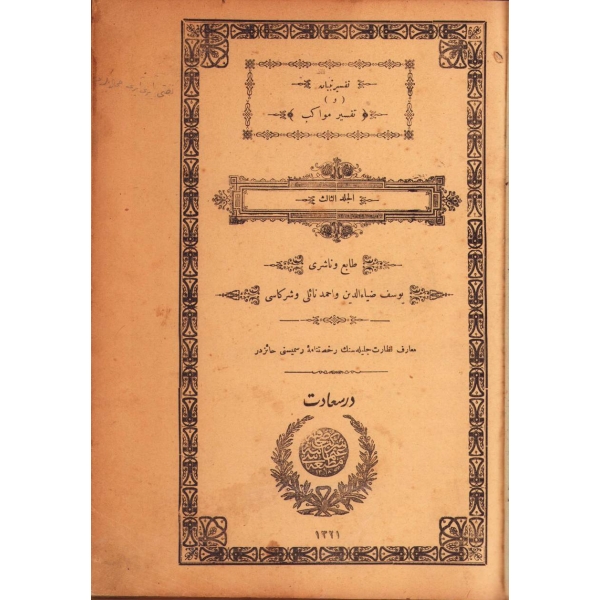 تفسير تبيان
( و )
﴿ تفسير مواكب ﴾
الجلد الثالث
طابع وناشرى
يوسف ضياءالدين واحمد نائلى وشركاسى
معارف نظارت جليله‌سنك رخصتنامهٔ رسميسنى حائزدر
درسعادت
١٣٢١